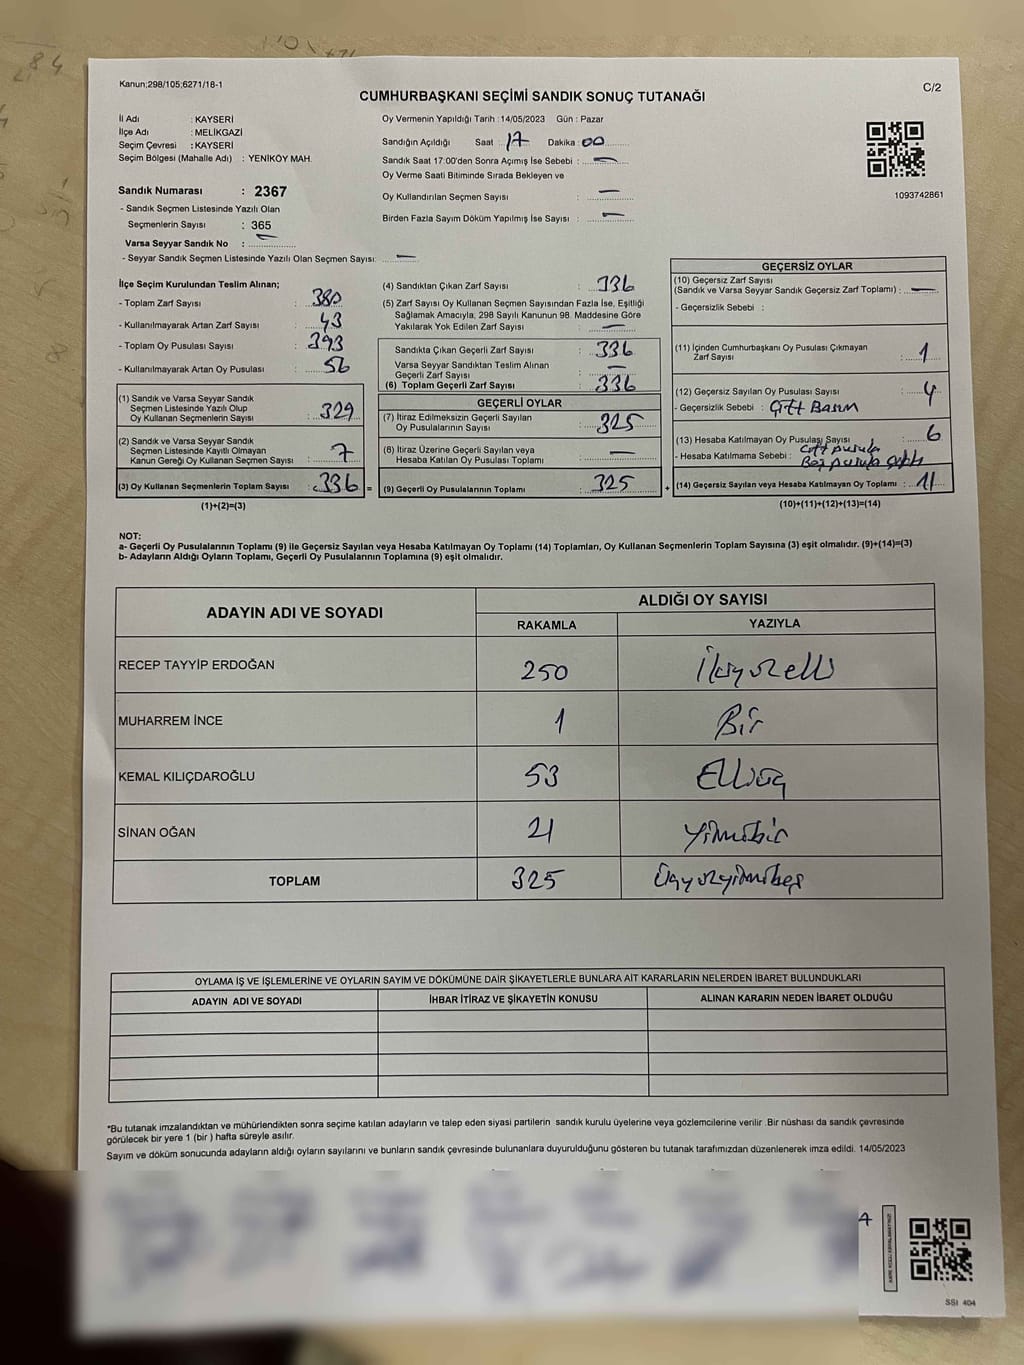 Kanun:298/105;6271/18-1
C/2
CUMHURBAŞKANI SEÇİMİ SANDIK SONUÇ TUTANAĞI
İl Adı : KAYSERİ
İlçe Adı : MELİKGAZİ
Seçim Çevresi : KAYSERİ
Seçim Bölgesi (Mahalle Adı) : YENİKÖY MAH.
Sandık Numarası : 2367
- Sandık Seçmen Listesinde Yazılı Olan
Seçmenlerin Sayısı : 365
Varsa Seyyar Sandık No : —
- Seyyar Sandık Seçmen Listesinde Yazılı Olan Seçmen Sayısı: —
Oy Vermenin Yapıldığı Tarih :14/05/2023 Gün : Pazar
Sandığın Açıldığı Saat : 17 Dakika : 00
Sandık Saat 17:00'den Sonra Açımış İse Sebebi : —
Oy Verme Saati Bitiminde Sırada Bekleyen ve
Oy Kullandırılan Seçmen Sayısı : —
Birden Fazla Sayım Döküm Yapılmış İse Sayısı : —
1093742861
İlçe Seçim Kurulundan Teslim Alınan;
- Toplam Zarf Sayısı : 380
- Kullanılmayarak Artan Zarf Sayısı : 43
- Toplam Oy Pusulası Sayısı : 393
- Kullanılmayarak Artan Oy Pusulası : 56
(1) Sandık ve Varsa Seyyar Sandık
Seçmen Listesinde Yazılı Olup
Oy Kullanan Seçmenlerin Sayısı : 329
(2) Sandık ve Varsa Seyyar Sandık
Seçmen Listesinde Kayıtlı Olmayan
Kanun Gereği Oy Kullanan Seçmen Sayısı : 7
(3) Oy Kullanan Seçmenlerin Toplam Sayısı : 336 =
(1)+(2)=(3)
(4) Sandıktan Çıkan Zarf Sayısı : 336
(5) Zarf Sayısı Oy Kullanan Seçmen Sayısından Fazla İse, Eşitliği
Sağlamak Amacıyla, 298 Sayılı Kanunun 98. Maddesine Göre
Yakılarak Yok Edilen Zarf Sayısı : —
Sandıkta Çıkan Geçerli Zarf Sayısı : 336
Varsa Seyyar Sandıktan Teslim Alınan
Geçerli Zarf Sayısı : —
(6) Toplam Geçerli Zarf Sayısı : 336
GEÇERLİ OYLAR
(7) İtiraz Edilmeksizin Geçerli Sayılan
Oy Pusulalarının Sayısı : 325
(8) İtiraz Üzerine Geçerli Sayılan veya
Hesaba Katılan Oy Pusulası Toplamı : —
(9) Geçerli Oy Pusulalarının Toplamı : 325 +
GEÇERSİZ OYLAR
(10) Geçersiz Zarf Sayısı
(Sandık ve Varsa Seyyar Sandık Geçersiz Zarf Toplamı) : —
- Geçersizlik Sebebi :
(11) İçinden Cumhurbaşkanı Oy Pusulası Çıkmayan
Zarf Sayısı : 1
(12) Geçersiz Sayılan Oy Pusulası Sayısı : 4
- Geçersizlik Sebebi : Çift Basım
(13) Hesaba Katılmayan Oy Pusulası Sayısı : 6
- Hesaba Katılmama Sebebi : Çift pusula
Boş pusula
(14) Geçersiz Sayılan veya Hesaba Katılmayan Oy Toplamı : 11
(10)+(11)+(12)+(13)=(14)
NOT:
a- Geçerli Oy Pusulalarının Toplamı (9) ile Geçersiz Sayılan veya Hesaba Katılmayan Oy Toplamı (14) Toplamları, Oy Kullanan Seçmenlerin Toplam Sayısına (3) eşit olmalıdır. (9)+(14)=(3)
b- Adayların Aldığı Oyların Toplamı, Geçerli Oy Pusulalarının Toplamına (9) eşit olmalıdır.
ADAYIN ADI VE SOYADI
ALDIĞI OY SAYISI
RAKAMLA YAZIYLA
RECEP TAYYİP ERDOĞAN 250 İkiyüzelli
MUHARREM İNCE 1 Bir
KEMAL KILIÇDAROĞLU 53 Elliüç
SİNAN OĞAN 21 Yirmibir
TOPLAM 325 Üçyüzyirmibeş
OYLAMA İŞ VE İŞLEMLERİNE VE OYLARIN SAYIM VE DÖKÜMÜNE DAİR ŞİKAYETLERLE BUNLARA AİT KARARLARIN NELERDEN İBARET BULUNDUKLARI
ADAYIN ADI VE SOYADI İHBAR İTİRAZ VE ŞİKAYETİN KONUSU ALINAN KARARIN NEDEN İBARET OLDUĞU
*Bu tutanak imzalandıktan ve mühürlendikten sonra seçime katılan adayların ve talep eden siyasi partilerin sandık kurulu üyelerine veya gözlemcilerine verilir .Bir nüshası da sandık çevresinde
görülecek bir yere 1 (bir ) hafta süreyle asılır.
Sayım ve döküm sonucunda adayların aldığı oyların sayılarını ve bunların sandık çevresinde bulunanlara duyurulduğunu gösteren bu tutanak tarafımızdan düzenlenerek imza edildi. 14/05/2023
SSI 404